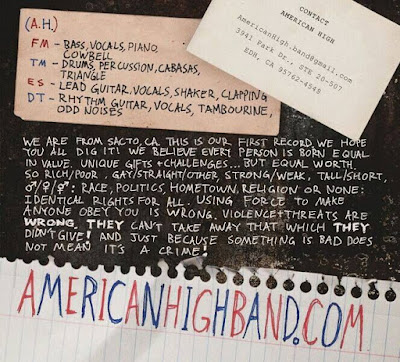 (A.H.)
FM - BASS, VOCALS, PIANO,
COWBELL
TM - DRUMS, PERCUSSION, CABASAS,
TRIANGLE
ES - LEAD GUITAR, VOCALS, SHAKER, CLAPPING
DT - RHYTHM GUITAR, VOCALS, TAMBOURINE,
ODD NOISES
CONTACT
AMERICAN HIGH
AmericanHigh.band@gmail.com
3941 Park Dr., STE 20-507
EDH, CA 95762-4549
WE ARE FROM SACTO, CA. THIS IS OUR FIRST RECORD. WE HOPE
YOU ALL DIG IT! WE BELIEVE EVERY PERSON IS BORN EQUAL
IN VALUE. UNIQUE GIFTS + CHALLENGES... BUT EQUAL WORTH.
SO RICH/POOR, GAY/STRAIGHT/OTHER, STRONG/WEAK, TALL/SHORT,
♂/♀/⚥: RACE, POLITICS, HOMETOWN, RELIGION OR NONE:
IDENTICAL RIGHTS FOR ALL. USING FORCE TO MAKE
ANYONE OBEY YOU IS WRONG. VIOLENCE + THREATS ARE
WRONG. THEY CAN'T TAKE AWAY THAT WHICH THEY
DIDN'T GIVE! AND JUST BECAUSE SOMETHING IS BAD DOES
NOT MEAN IT'S A CRIME!
AMERICANHIGHBAND.COM